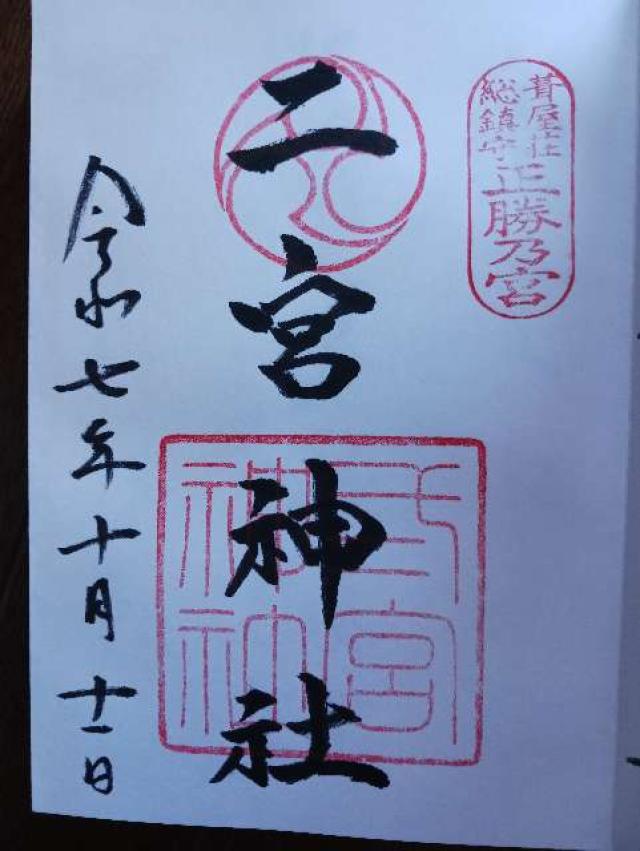 葺屋荘
総鎮守
正勝乃宮
二宮神社
令和七年十月十一日